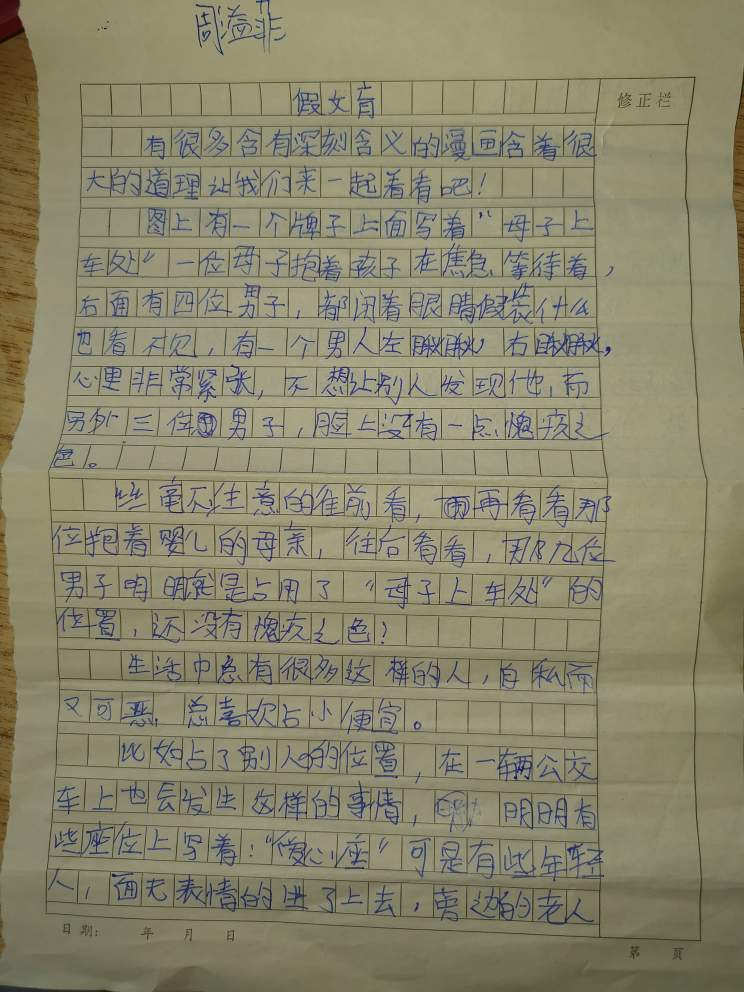 周溢菲
修正栏
假文盲
有很多含有深刻含义的漫画含着很
大的道理让我们来一起看看吧！
图上有一个牌子上面写着“母子上
车处”一位母子抱着孩子在焦急等待着，
右面有四位男子，都闭着眼睛假装什么
也看不见，有一个男人左瞅瞅，右瞅瞅，
心里非常紧张，不想让别人发现他，而
另外三位男子，脸上没有一点愧疚之
色。
些毫不注意的往前看，再看看那
位抱着婴儿的母亲，往后看看，那几位
男子明明就是占用了“母子上车处”的
位置，还没有愧疚之色？
生活中总有很多这样的人，自私而
又可恶，总喜欢占小便宜。
比如占了别人的位置，在一辆公交
车上也会发生这样的事情，明明有
些座位上写着：“爱心座”可是有些年轻
人，面无表情的进了上去，旁边的老人
日期： 年 月 日
第 页